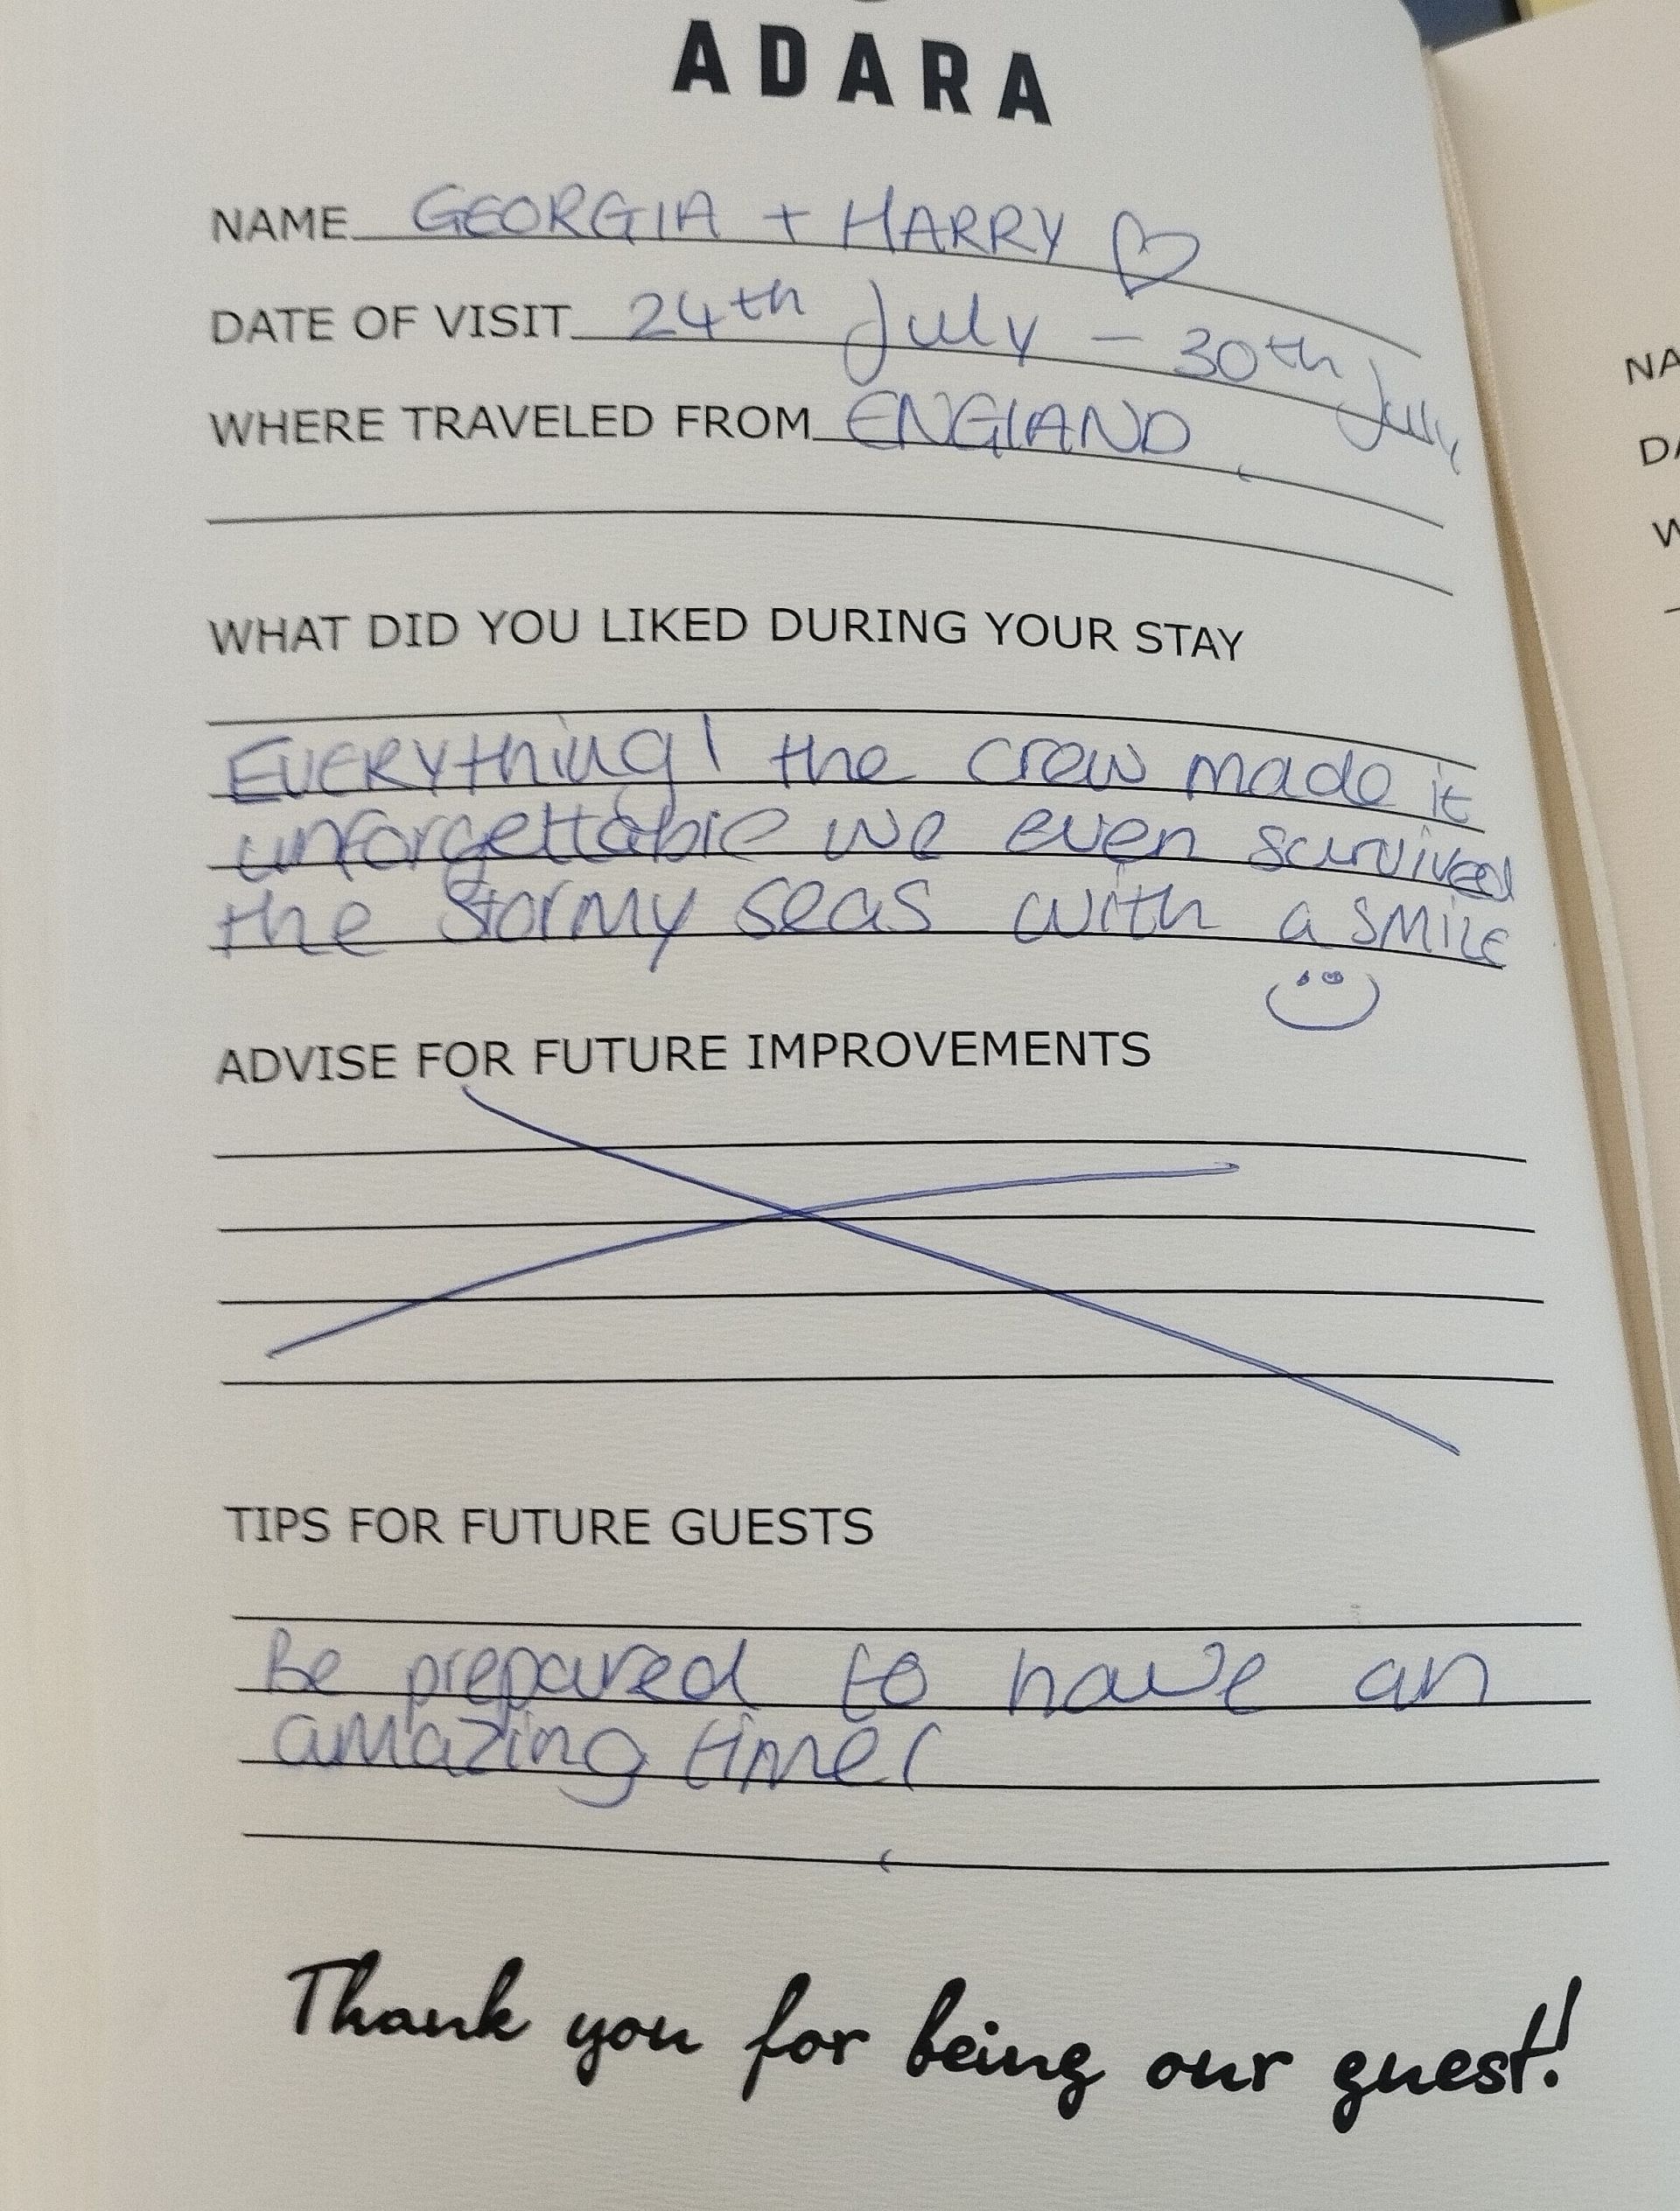 ADARA
NAME GEORGIA + HARRY ♡
DATE OF VISIT 24th July – 30th July
WHERE TRAVELED FROM ENGLAND
WHAT DID YOU LIKED DURING YOUR STAY
EVERYthing! the crew made it
unforgettable we even survived
the stormy seas with a SMILE
ADVISE FOR FUTURE IMPROVEMENTS
TIPS FOR FUTURE GUESTS
Be prepared to have an
amazing time!
Thank you for being our guest!
NA
DA
W